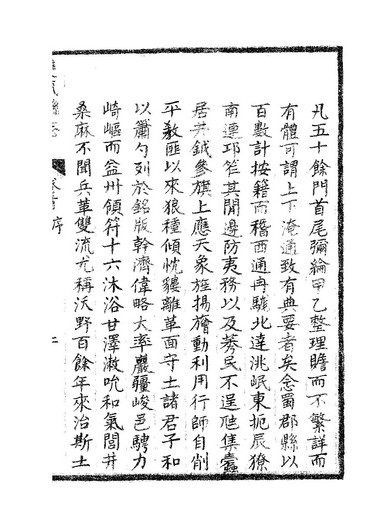 凡五十餘門首尾彌綸甲乙整理贍而不繁詳而
有體可謂上下淹通致有典要者矣念蜀郡縣以
百數計按籍而稽西通冉駹北達洮岷東扼辰獠
南連邛笮其間邊防夷務以及莠民不逞虺集蠹
居井鉞參旗上應天象旌揚旝動利用行師自削
平教匪以來狼種傾忱離革面守土諸君子和
以簫勺列於銘版幹濟偉略大率巖疆峻邑騁力
崎嶇而益州領符十六沐浴甘澤漱吮和氣閭井
桑麻不聞兵革雙流尤稱沃野百餘年來治斯土
序